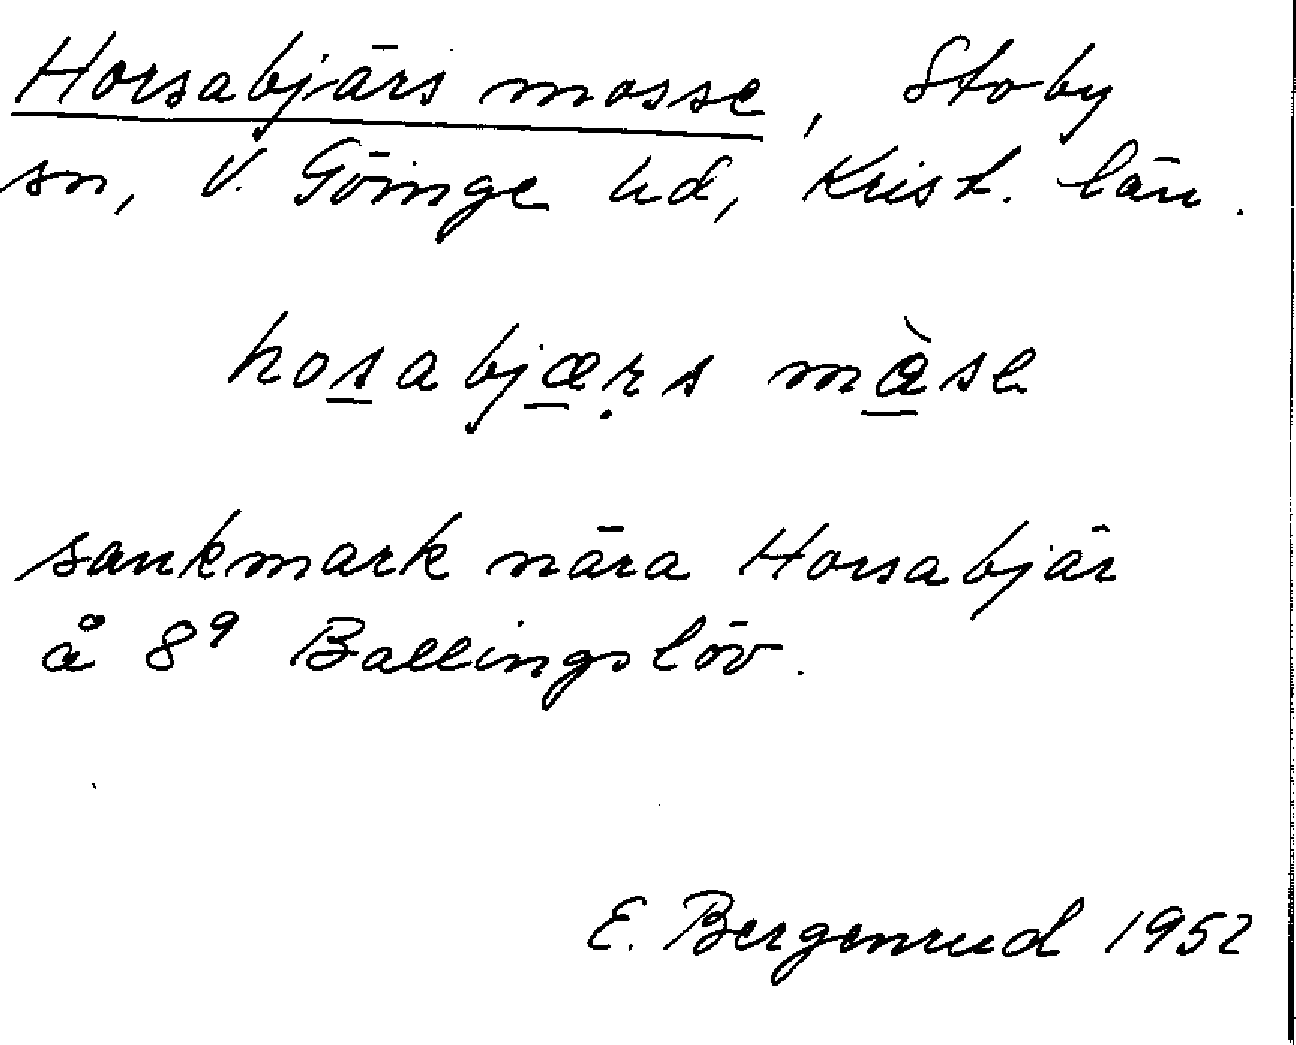 Horsabjärs mosse, Stoby
sn, V. Göinge hd, Krist. län.
hosabjæṛs màse
sankmark nära Horsabjär
å 8⁹ Ballingslöv.
E. Bergenrud 1952